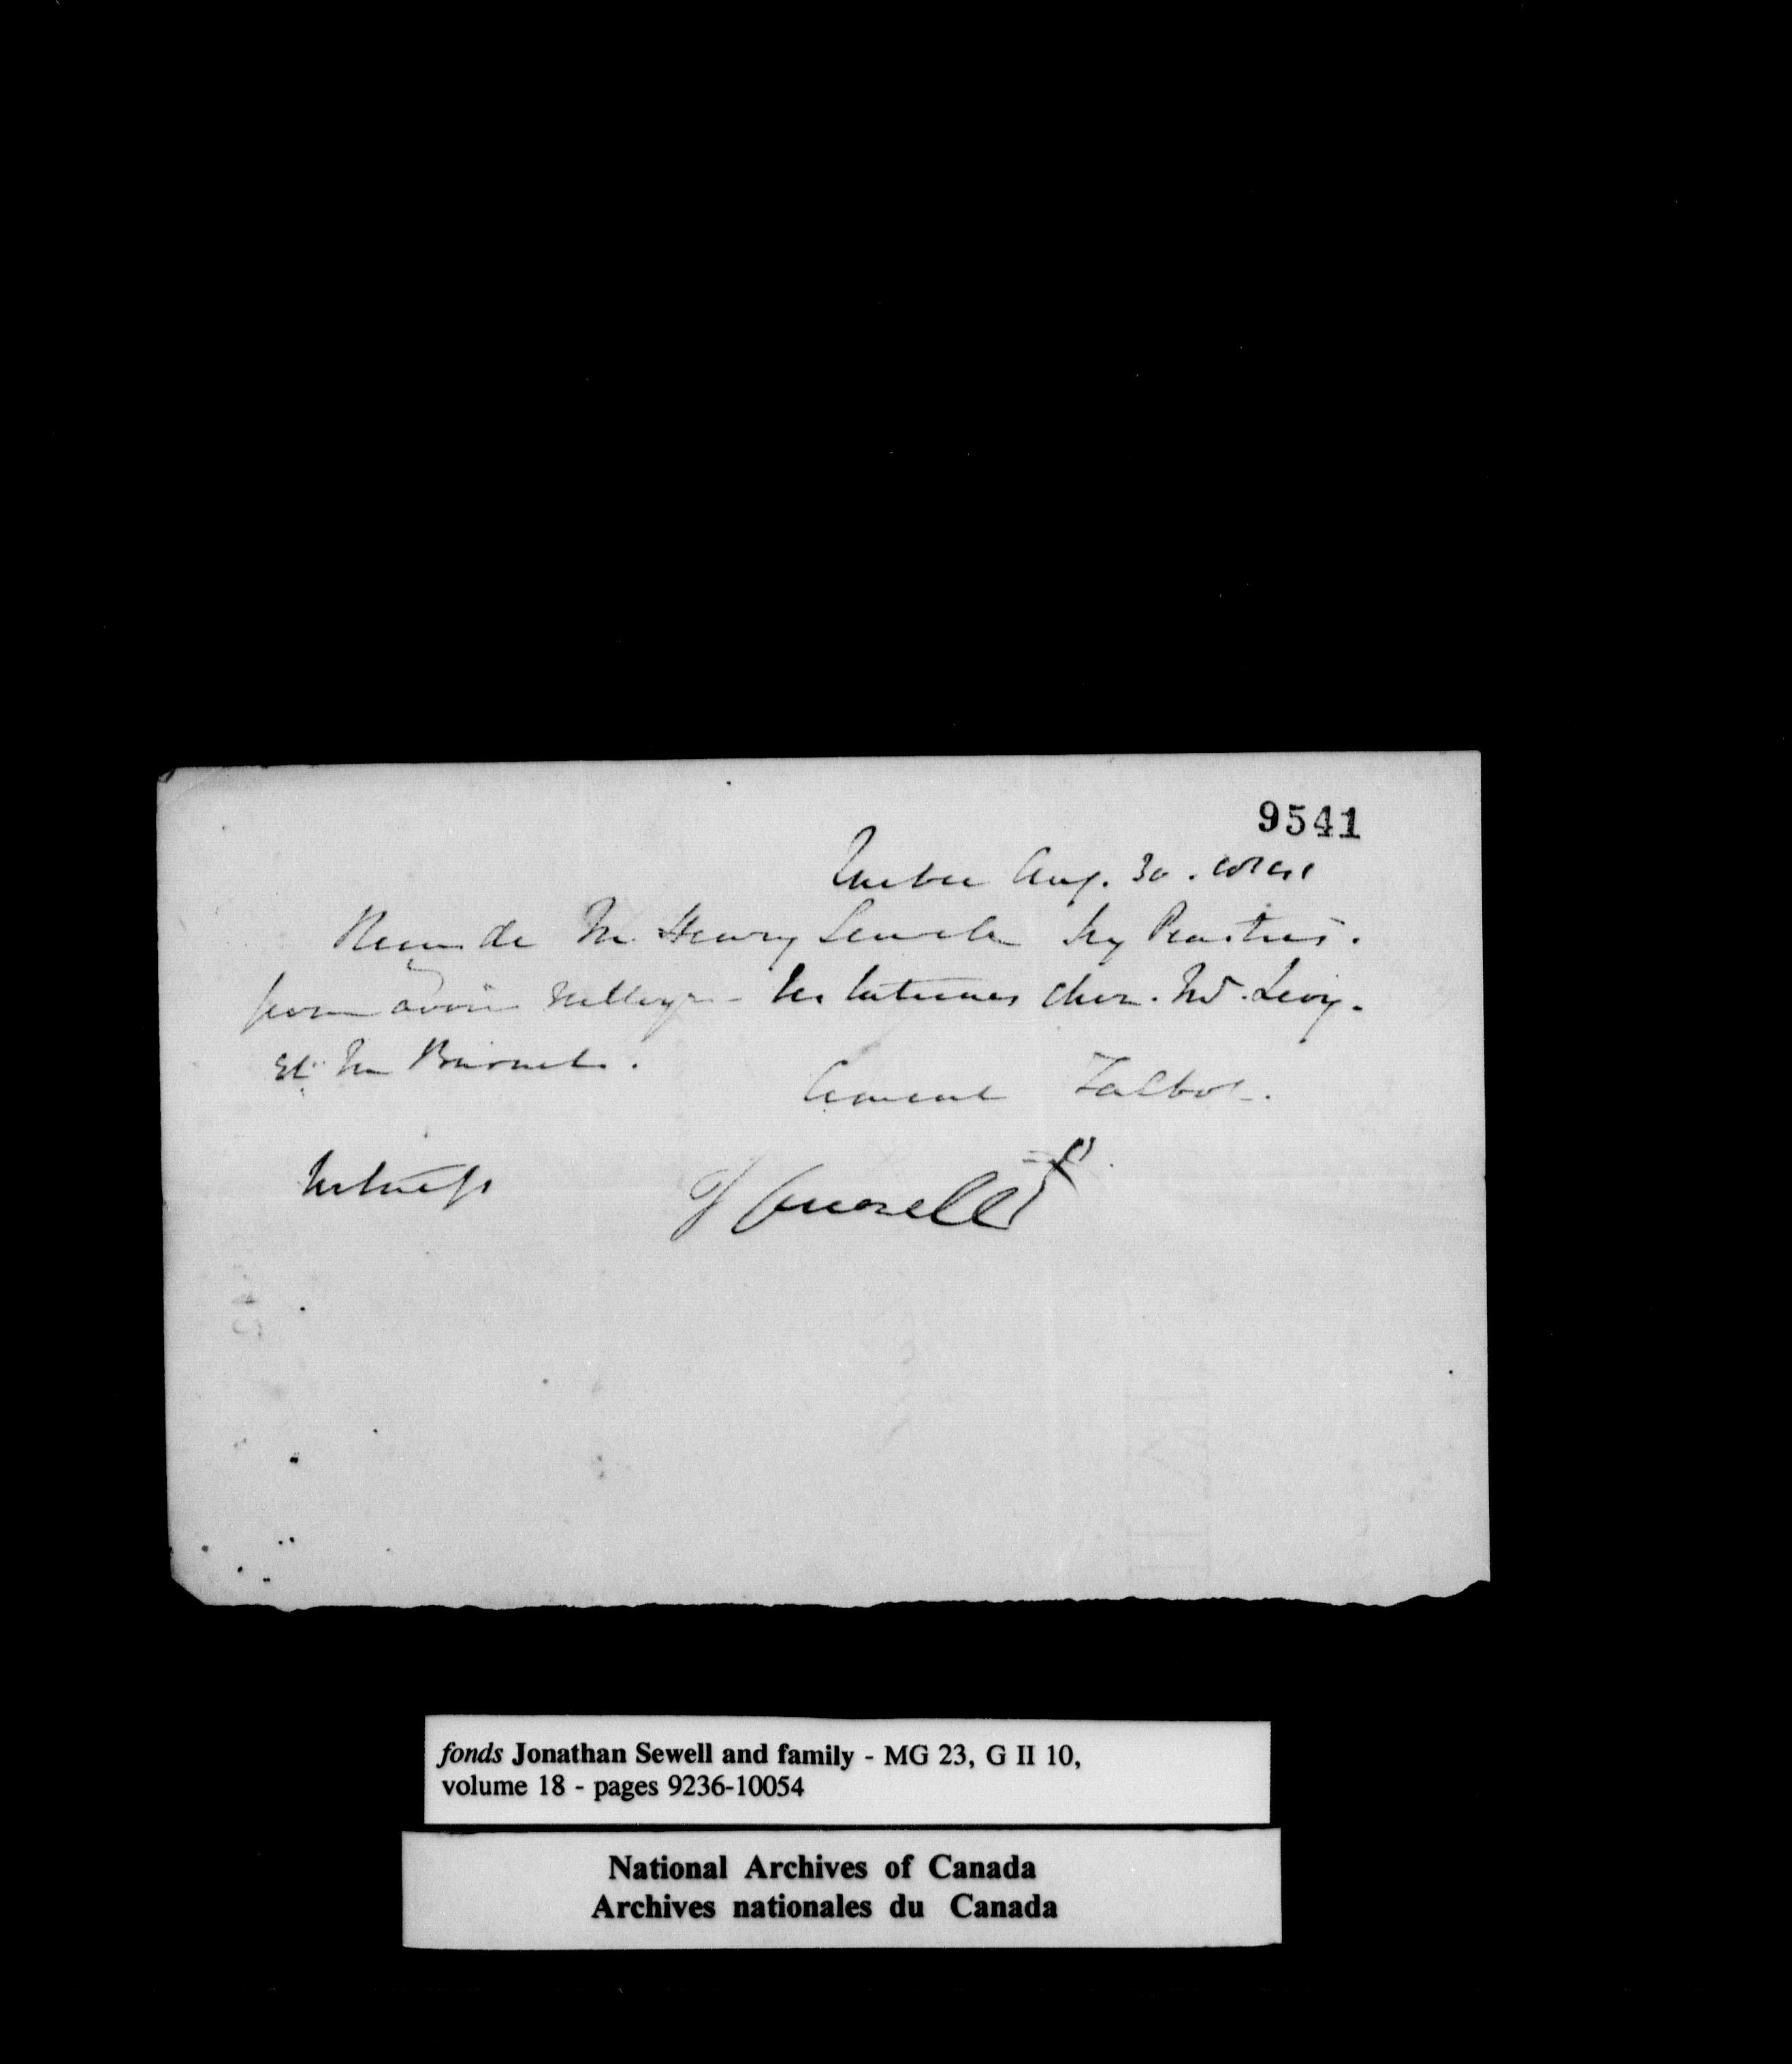 9541
Quebec Aug. 30.
Recu de Mr Henry Sewell Piastres.
pour avoir nettoyer les latrines chez Mr. Levy.
et Mr Burnet.
Clement Talbot.
Witness
fonds Jonathan Sewell and family - MG 23, G II 10,
volume 18 - pages 9236-10054
National Archives of Canada
Archives nationales du Canada